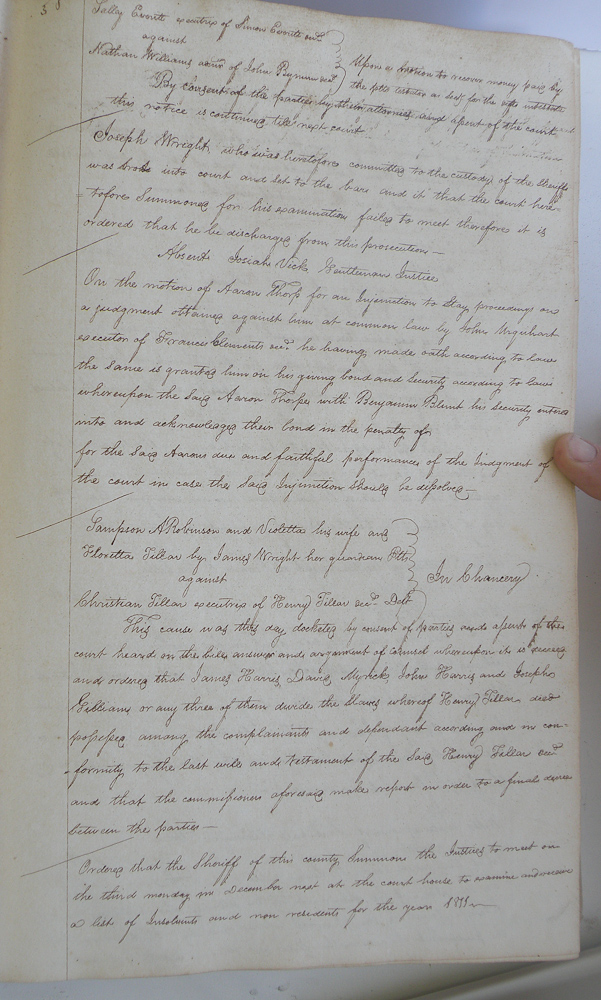 Sally Everitt executrix of Simon Everitt decd.
against
Nathan Williams admr. of John Pryman decd.
Upon a motion to recover money paid by
the plts testator as secy. for the defts intestate
By consent of the parties by their attornies and assent of the court
this notice is continued till next court
Joseph Wright who was heretofore committed to the custody of the Sheriff
was brot. into court and set to the barr and it that the court here-
tofore Summoned for his examination failed to meet therefore it is
ordered that he be discharged from this prosecution —
Absent Josiah Vick Gentleman Justice
On the motion of Aaron Thorp for an Injunction to Stay proceedings on
a judgment obtained against him at common law by John Urquhart
executor of Francis Clements decd. he having made oath according to law
the same is granted him on his giving bond and Security according to law
whereupon the Said Aaron Thorpe with Benjamin Blunt his Security entered
into and acknowledged their bond in the penalty of
for the Said Aarons due and faithful performance of the Judgment of
the court in case the Said Injunction Should be dissolved —
Sampson A Robinson and Violetta his wife and
Floretta Tillar by James Wright her guardian Plts
against
Christian Tillar executrix of Henry Tillar decd. Deft
In Chancery
This cause was this day docketed by consent of parties and assent of the
court heard on the bill answer and argument of counsel whereupon it is decreed
and ordered that James Harris, David Myrick, John Harris and Joseph
Gilliam or any three of them divide the Slaves whereof Henry Tillar died
possessed among the complainants and defendant according and in con-
formity to the last will and testament of the Said Henry Tillar decd.
and that the commissioners aforesaid make report in order to a final decree
between the parties —
Ordered that the Sheriff of this county Summons the Justices to meet on
the third monday in December next at the court house to examine and receive
a list of Insolvents and non residents for the year 1811 —